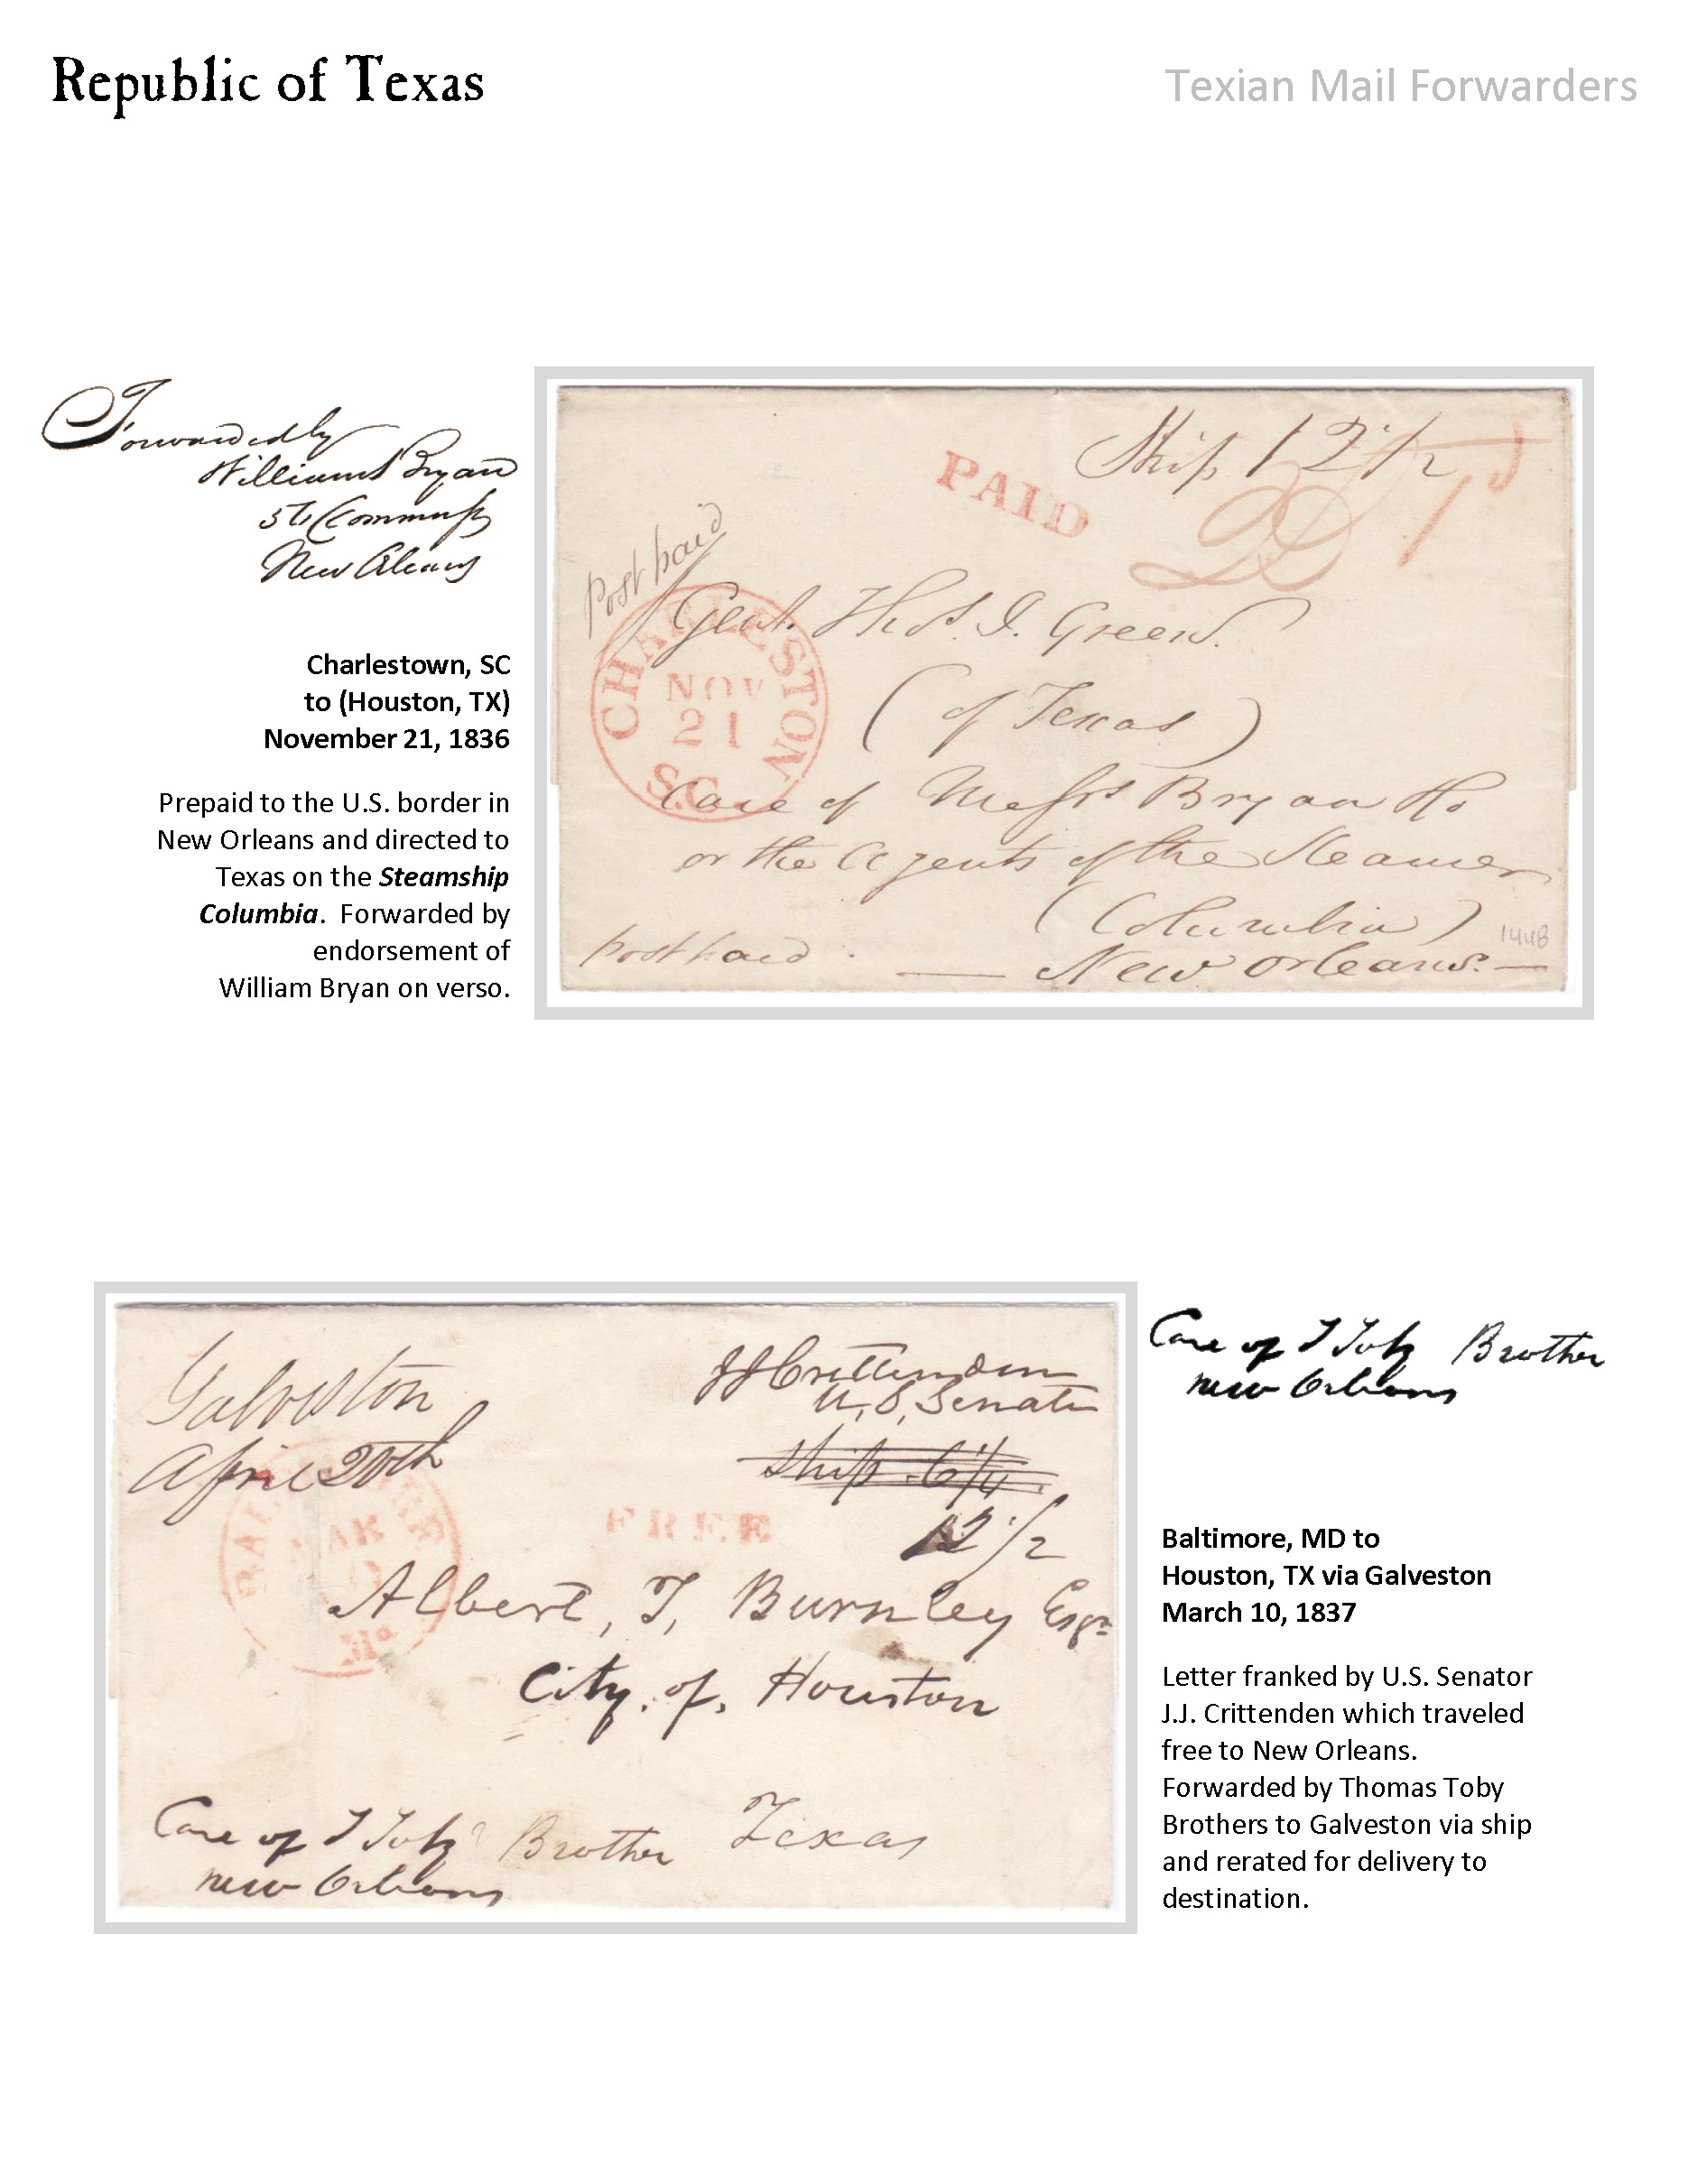 Republic of Texas
Texian Mail Forwarders
Forwarded by
William Bryan
New Orleans
Charlestown, SC
to (Houston, TX)
November 21, 1836
Prepaid to the U.S. border in
New Orleans and directed to
Texas on the Steamship
Columbia. Forwarded by
endorsement of
William Bryan on verso.
Ship 12 1/2
PAID
Post paid
CHARLESTON
NOV
21
S.C
Genl. Thos. J. Green.
(of Texas)
Care of Messrs Bryan Ho
or the Agents of the Steamer
(Columbia)
1448
post paid
— New Orleans. —
Galveston
April 20th
JJ Crittenden
U.S. Senate
Ship 6 1/4
12 1/2
FREE
BALTIMORE
MAR
10
Md
Albert, T, Burnley Esqr
City. of. Houston
Texas
Care of T Toby Brother
new Orleans
Care of T Toby Brother
new Orleans
Baltimore, MD to
Houston, TX via Galveston
March 10, 1837
Letter franked by U.S. Senator
J.J. Crittenden which traveled
free to New Orleans.
Forwarded by Thomas Toby
Brothers to Galveston via ship
and rerated for delivery to
destination.